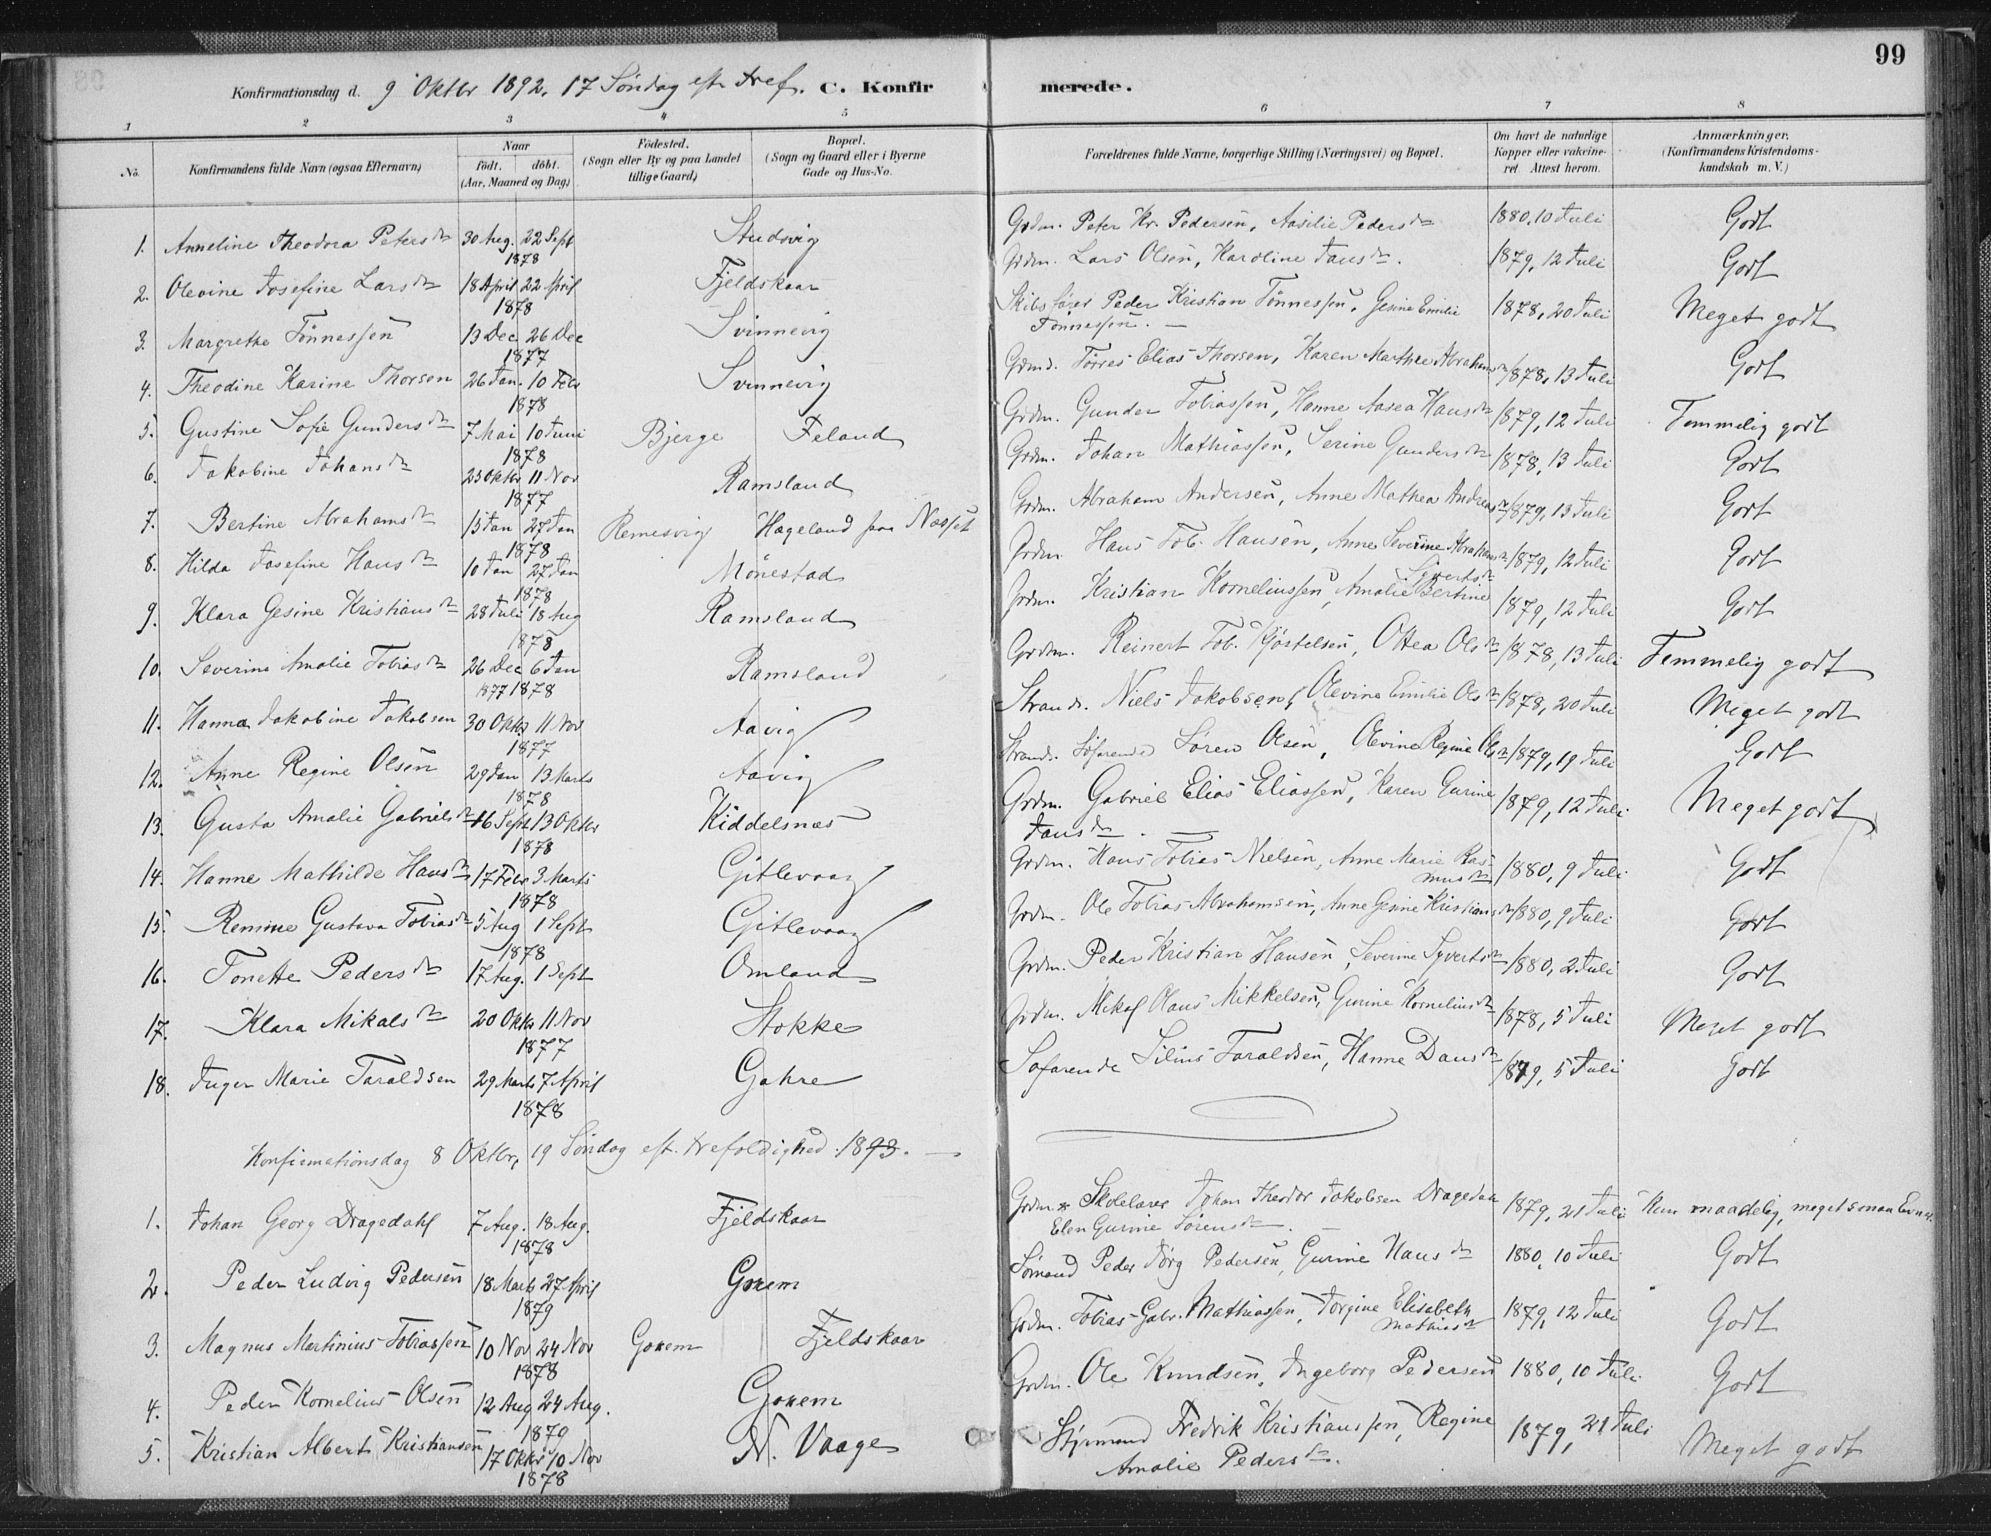 99
Konfirmationsdag d. 9 Oktbr 1892. 17 Søndag eft. Tref. C. Konfirmerede.
1 2 3 4 5 6 7 8
No. Konfirmandens fulde Navn (ogsaa Efternavn) Naar født. døbt. (Aar, Maaned og Dag) Fødested. (Sogn eller By og paa Landet tillige Gaard) Bopæl. (Sogn og Gaard eller i Byerne Gade og Hus-No. Forældrenes fulde Navne, borgerlige Stilling (Næringsvei) og Bopæl. Om havt de naturlige Kopper eller vakcineret. Attest herom. Anmærkninger. (Konfirmandens Kristendomskundskab m. V.)
1. Anneline Theodora Petersdtr 30 Aug. 22 Sept 1878 Studsvig Grdm. Peter Kr. Pedersen, Aasilie Pedersdtr 1880, 10 Juli Godt
2. Olevine Josefine Larsdtr 18 April 22 April 1878 Fjeldskaar Grdm. Lars Olsen, Karoline Jansdtr. 1879, 12 Juli Godt
3. Margrethe Tönnessen 13 Dec 26 Dec 1877 Svinnevig Skibsfører Peder Kristian Tönnessen, Gesine Emilie Tönnessen. — 1878, 20 Juli Meget godt
4. Theodine Karine Thorsen 26 Jan. 10 Febr 1878 Svinnevig Grdmd. Tørres Elias Thorsen, Karen Marthea Abrahamsdtr 1878, 13 Juli Godt
5. Gustine Sofie Gundersdtr 7 Mai 10 Juni 1878 Bjerge Feland Grdm. Gunder Tobiassen, Hanne Aasea Hansdtr 1879, 12 Juli Temmelig godt
6. Jakobine Johansdtr 23 Oktbr 11 Nov 1877 Ramsland Grdm. Johan Mathiassen, Serine Gundersdtr 1878, 13 Juli Godt
7. Bertine Abrahamsdtr 15 Jan 27 Jan 1878 Remesvig Hageland paa Næsset Grdm. Abraham Andersen, Anne Mathea Andreasdtr 1879, 13 Juli Godt
8. Hilda Josefine Hansdtr 10 Jan 27 Jan 1878 Mönestad Grdm Hans Tob. Hansen, Anne Severine Abrahamsdtr 1879, 12 Juli Godt
9. Klara Gesine Kristiansdtr 28 Juli 18 Aug 1878 Ramsland Grdm. Kristian Korneliussen, Amalie Bertine Syvertsdtr 1879, 12 Juli Godt
10. Severine Amalie Tobiasdtr 26 Dec 6 Jan 1877 1878 Ramsland Grdm. Reinert Tob. Kjöstelsen, Ottea Olsdtr 1878, 13 Juli Temmelig godt
11. Hanna Jakobine Jakobsen 30 Oktbr 11 Nov 1877 Aavig Strands. Niels Jakobsen, Olevine Emilie Olsdtr 1878, 20 Juli Meget godt
12. Anne Regine Olsen 29 Jan 13 Marts 1878 Aavig Strands. Söfarende Sören Olsen, Olevine Regine Olsdtr 1879, 19 Juli Godt
13. Gusta Amalie Gabrielsdtr 16 Sept 13 Oktbr 1878 Kiddelsnæs Grdm. Gabriel Elias Eliassen, Karen Gurine Jansdtr. — 1879, 12 Juli Meget godt
14. Hanne Mathilde Hansdtr 17 Febr 3 Marts 1878 Gitlevaag Grdm. Hans Tobias Nielsen, Anne Marie Rasmusdtr 1880, 9 Juli Godt
15. Remine Gustava Tobiasdtr 5 Aug 1 Sept 1878 Gitlevaag Grdm. Ole Tobias Abrahamsen, Anne Gesine Kristiansdtr 1880, 9 Juli Godt
16. Tonette Pedersdtr 17 Aug. 1 Sept Omland Grdm. Peder Kristian Hansen, Severine Syvertsdtr 1880, 2 Juli Godt
17. Klara Mikalsdtr 20 Oktbr 11 Nov 1877 Stokke Grdm. Mikal Olaus Mikkelsen, Gurine Korneliusdtr 1878, 5 Juli Meget godt
18. Inger Marie Taraldsen 29 Marts 7 April 1878 Gahre Søfarende Silius Taraldsen, Hanne Dansdtr 1879, 5 Juli Godt
Konfirmationsdag 8 Oktbr, 19 Søndag eft. Trefoldighed 1893. —
1. Johan Georg Dragedahl 7 Aug. 18 Aug. 1878 Fjeldskaar Grdm & Skolelærer Johan Theodor Jakobsen Dragedal Elen Gurine Sörensdtr. — 1879, 21 Juli Kun maadelig, meget smaa Evner.
2. Peder Ludvig Pedersen 18 Marts 27 April 1879 Gonem Sömand Peder Jörg Pedersen, Gurine Hansdtr 1880, 10 Juli Godt
3. Magnus Martinius Tobiassen 10 Nov 24 Nov 1878 Gonem Fjeldskaar Grdm. Tobias Gabr. Mathiassen, Jorgine Elisabeth Mathiasdtr 1879, 12 Juli Godt
4. Peder Kornelius Olsen 12 Aug 24 Aug. 1879 Gonem Grdm. Ole Knudsen, Ingeborg Pedersen 1880, 10 Juli. Godt
5. Kristian Albert Kristiansen 17 Oktbr 10 Nov 1878 N. Vaage Styrmand Fredrik Kristianssen, Regine Amalie Pedersdtr. 1879, 21 Juli Meget godt